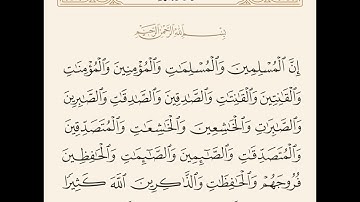 بِسْمِ ٱللَّهِ ٱلرَّحْمَٰنِ ٱلرَّحِيمِ
إِنَّ ٱلْمُسْلِمِينَ وَٱلْمُسْلِمَٰتِ وَٱلْمُؤْمِنِينَ وَٱلْمُؤْمِنَٰتِ
وَٱلْقَٰنِتِينَ وَٱلْقَٰنِتَٰتِ وَٱلصَّٰدِقِينَ وَٱلصَّٰدِقَٰتِ وَٱلصَّٰبِرِينَ
وَٱلصَّٰبِرَٰتِ وَٱلْخَٰشِعِينَ وَٱلْخَٰشِعَٰتِ وَٱلْمُتَصَدِّقِينَ
وَٱلْمُتَصَدِّقَٰتِ وَٱلصَّٰٓئِمِينَ وَٱلصَّٰٓئِمَٰتِ وَٱلْحَٰفِظِينَ
فُرُوجَهُمْ وَٱلْحَٰفِظَٰتِ وَٱلذَّٰكِرِينَ ٱللَّهَ كَثِيرًا